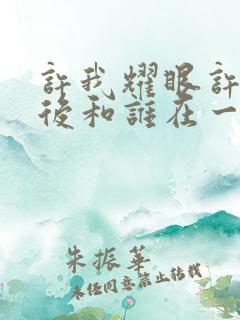 許我耀眼許
後和誰在一
朱振華
未经同意禁止转载